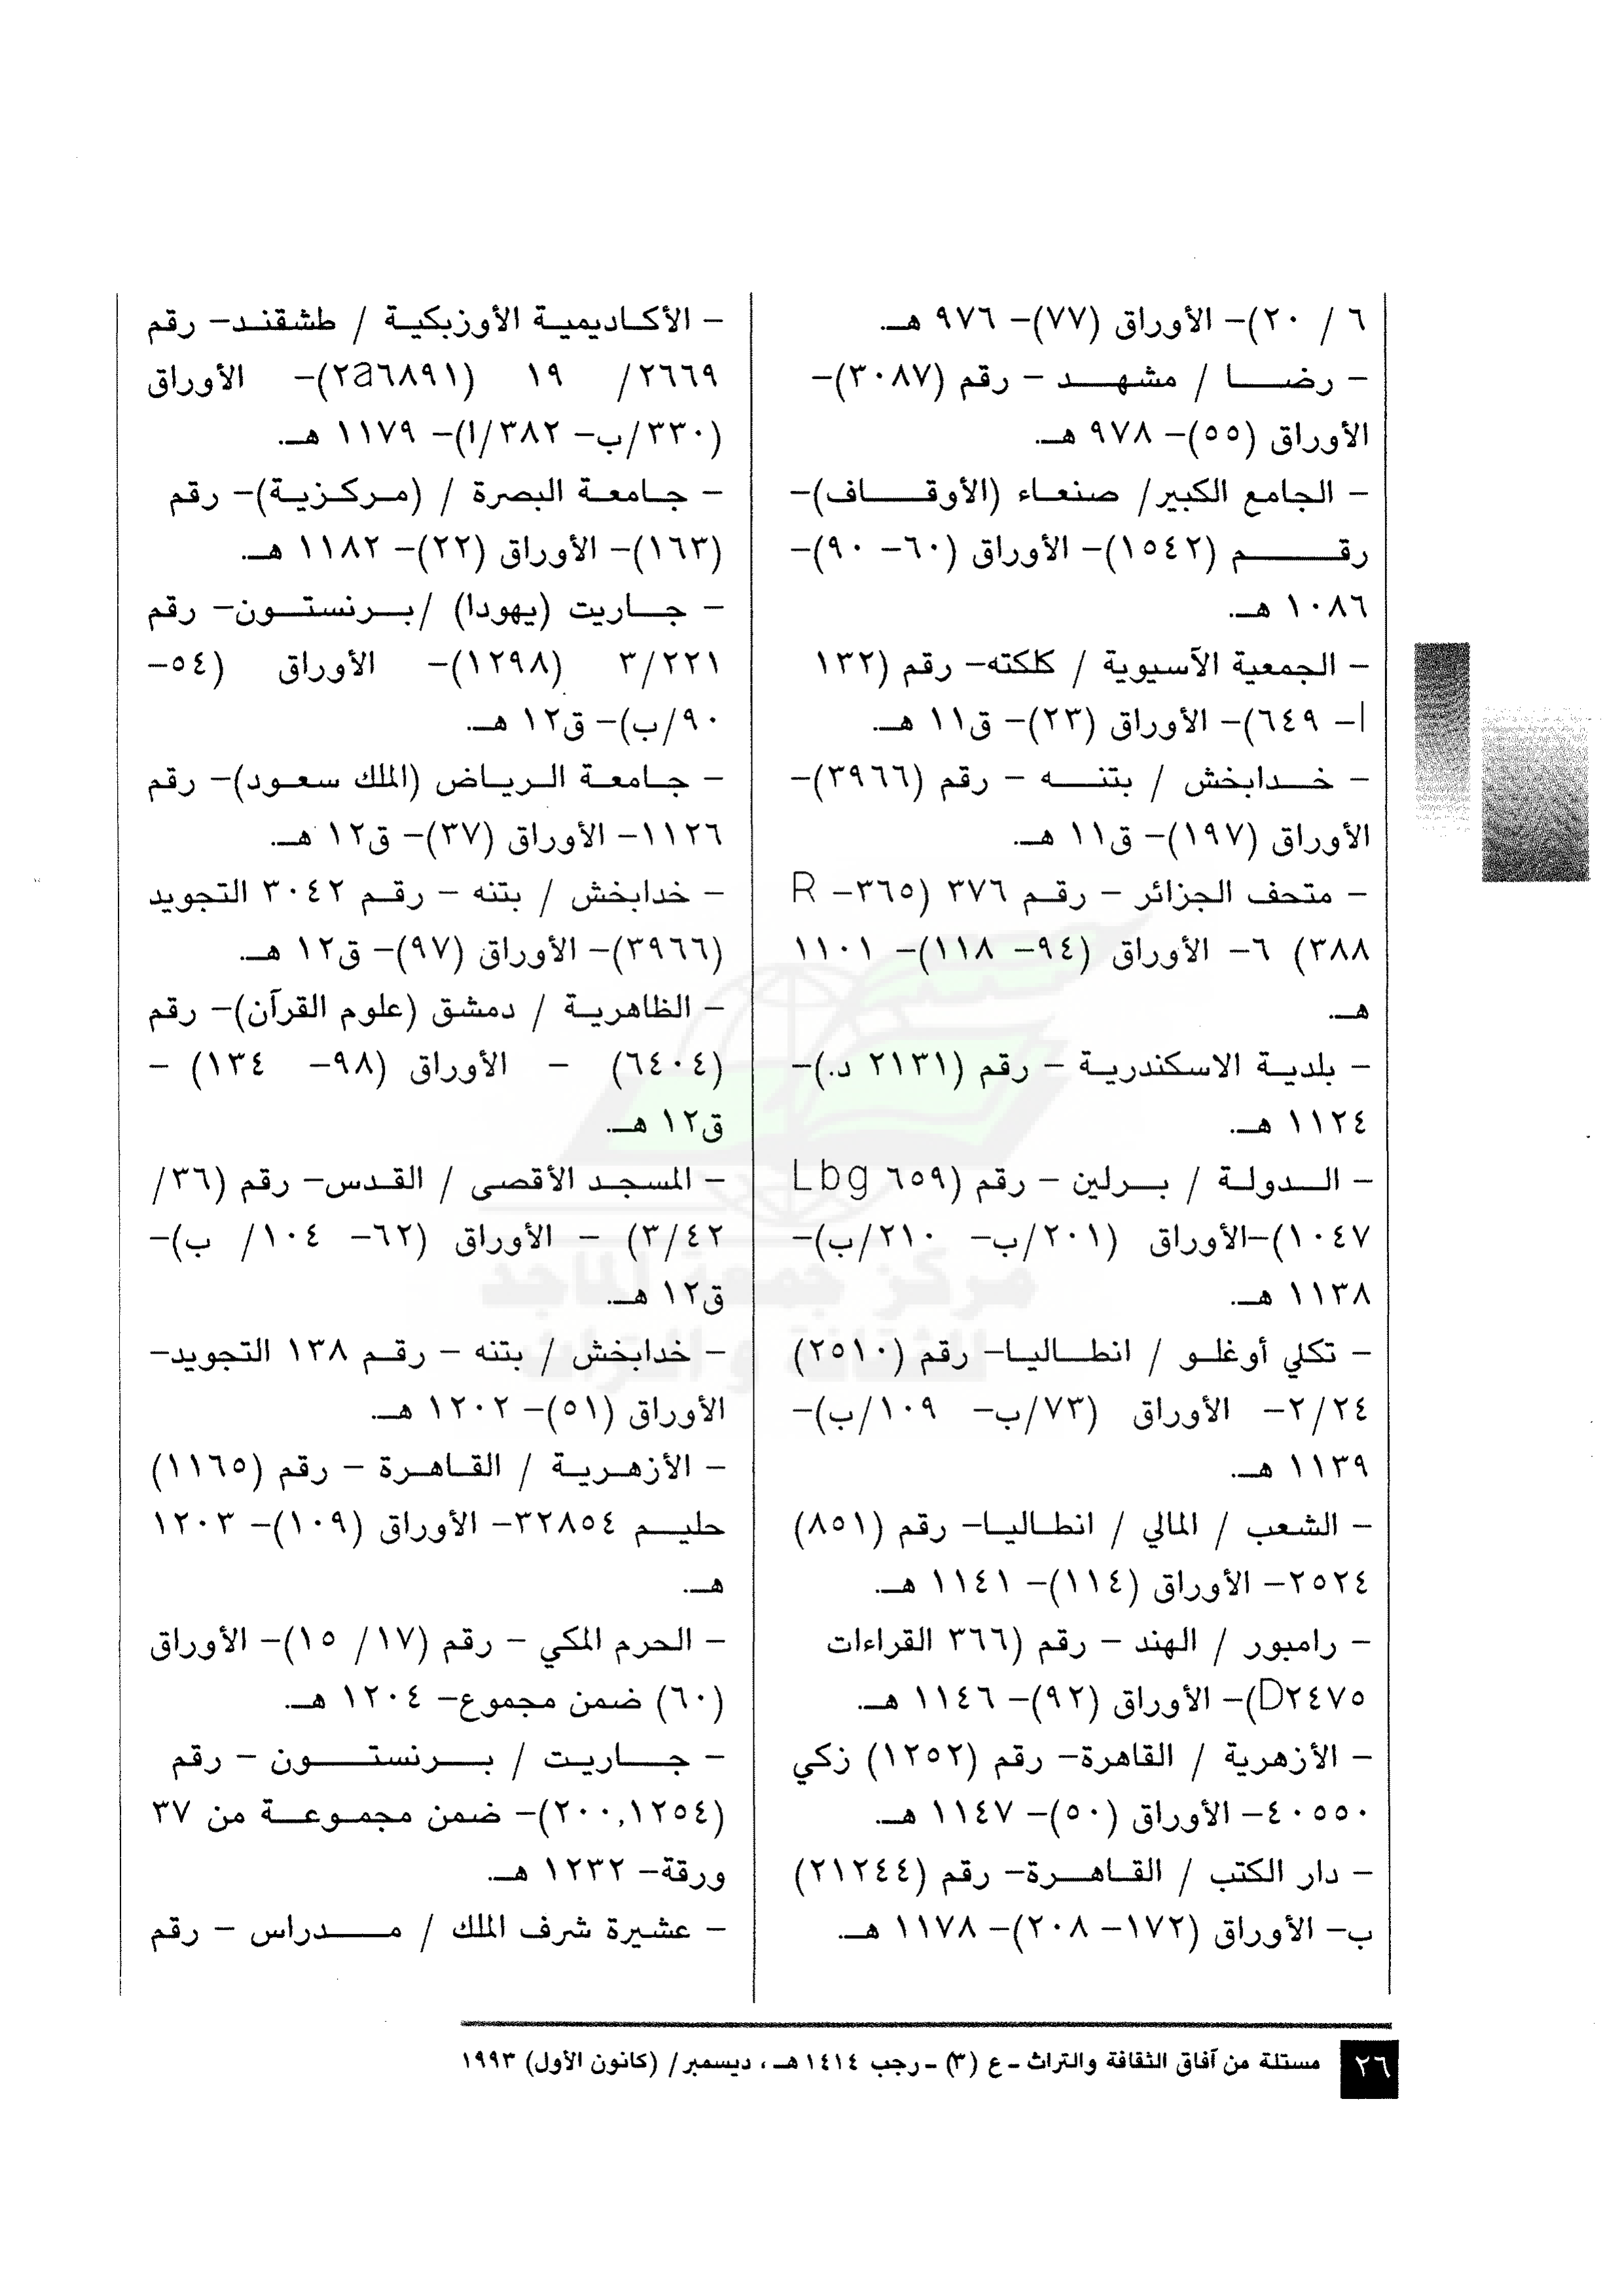 ٦ / ٢٠)– الأوراق (٧٧)– ٩٧٦ هـ.
– رضا / مشهد – رقم (٣٠٨٧)–
الأوراق (٥٥)– ٩٧٨ هـ.
– الجامع الكبير/ صنعاء (الأوقاف)–
رقم (١٥٤٢)– الأوراق (٦٠– ٩٠)–
١٠٨٦ هـ.
– الجمعية الآسيوية / كلكته– رقم (١٣٢
ا– ٦٤٩)– الأوراق (٢٣)– ق١١ هـ.
– خدابخش / بتنه – رقم (٣٩٦٦)–
الأوراق (١٩٧)– ق١١ هـ.
– متحف الجزائر – رقم ٣٧٦ (٣٦٥– R
٣٨٨) ٦– الأوراق (٩٤– ١١٨)– ١١٠١
هـ.
– بلدية الاسكندرية – رقم (٢١٣١ د.)–
١١٢٤ هـ.
– الدولة / برلين – رقم (٦٥٩ Lbg
١٠٤٧)–الأوراق (٢٠١/ب– ٢١٠/ب)–
١١٣٨ هـ.
– تكلي أوغلو / انطاليا– رقم (٢٥١٠)
٢/٢٤– الأوراق (٧٣/ب– ١٠٩/ب)–
١١٣٩ هـ.
– الشعب / المالي / انطاليا– رقم (٨٥١)
٢٥٢٤– الأوراق (١١٤)– ١١٤١ هـ.
– رامبور / الهند – رقم (٣٦٦ القراءات
D٢٤٧٥)– الأوراق (٩٢)– ١١٤٦ هـ.
– الأزهرية / القاهرة– رقم (١٢٥٢) زكي
٤٠٥٥٠– الأوراق (٥٠)– ١١٤٧ هـ.
– دار الكتب / القاهرة– رقم (٢١٢٤٤)
ب– الأوراق (١٧٢– ٢٠٨)– ١١٧٨ هـ.
– الأكاديمية الأوزبكية / طشقند– رقم
٢٦٦٩/ ١٩ (٢a٦٨٩١)– الأوراق
(٣٣٠/ب– ٣٨٢/ا)– ١١٧٩ هـ.
– جامعة البصرة / (مركزية)– رقم
(١٦٣)– الأوراق (٢٢)– ١١٨٢ هـ.
– جاريت (يهودا) /برنستون– رقم
٣/٢٢١ (١٢٩٨)– الأوراق (٥٤–
٩٠/ب)– ق١٢ هـ.
– جامعة الرياض (الملك سعود)– رقم
١١٢٦– الأوراق (٣٧)– ق١٢ هـ.
– خدابخش / بتنه – رقم ٣٠٤٢ التجويد
(٣٩٦٦)– الأوراق (٩٧)– ق١٢ هـ.
– الظاهرية / دمشق (علوم القرآن)– رقم
(٦٤٠٤) – الأوراق (٩٨– ١٣٤) –
ق١٢ هـ.
– المسجد الأقصى / القدس– رقم (٣٦/
٣/٤٢) – الأوراق (٦٢– ١٠٤/ ب)–
ق١٢ هـ.
– خدابخش / بتنه – رقم ١٣٨ التجويد–
الأوراق (٥١)– ١٢٠٢ هـ.
– الأزهرية / القاهرة – رقم (١١٦٥)
حليم ٣٢٨٥٤– الأوراق (١٠٩)– ١٢٠٣
هـ.
– الحرم المكي – رقم (١٧/ ١٥)– الأوراق
(٦٠) ضمن مجموع– ١٢٠٤ هـ.
– جاريت / برنستون – رقم
(٢٠٠,١٢٥٤)– ضمن مجموعة من ٣٧
ورقة– ١٢٣٢ هـ.
– عشيرة شرف الملك / مدراس – رقم
مركز جمعة الماجد
للثقافة و التراث
٢٦ مستلة من آفاق الثقافة والتراث ـ ع (٣) ـ رجب ١٤١٤ هـ، ديسمبر/ (كانون الأول) ١٩٩٣